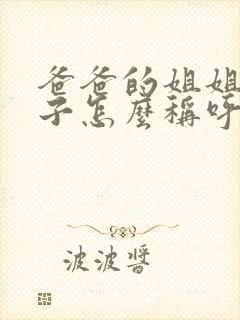 爸爸的姐姐
子怎麼稱呼
波波醬